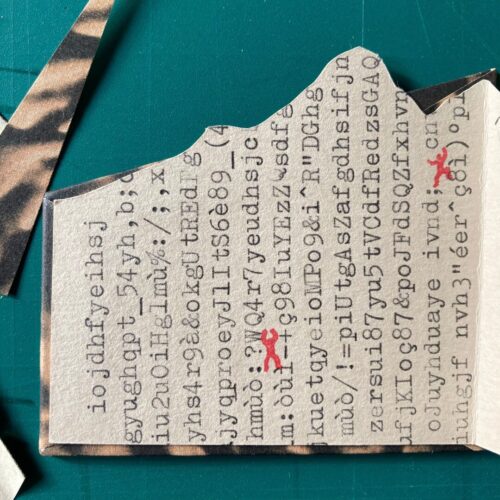 iojdhfyeihsj
gyughqpt_54yh,b;c
iu2uOiHglmù%:/;,x
yhs4r9à&okgUtREdFg
jyqproeyJlItS6è89_(4
hmùò:?WQ4r7yeudhsjc
m:òuf_+ç98IuYEzZwsdfg
jkuetqyeioMPo9&i^R"DGhg
mùò/!=piUtgAsZafgdhsifjn
zersui87yu5tVCdfRedzsGAQ
ufjKIoç87&poJFdSQZfxhvn
oJuynduaye ivnd; cn
iuhgjf nvh3"éer^çòì)°pl